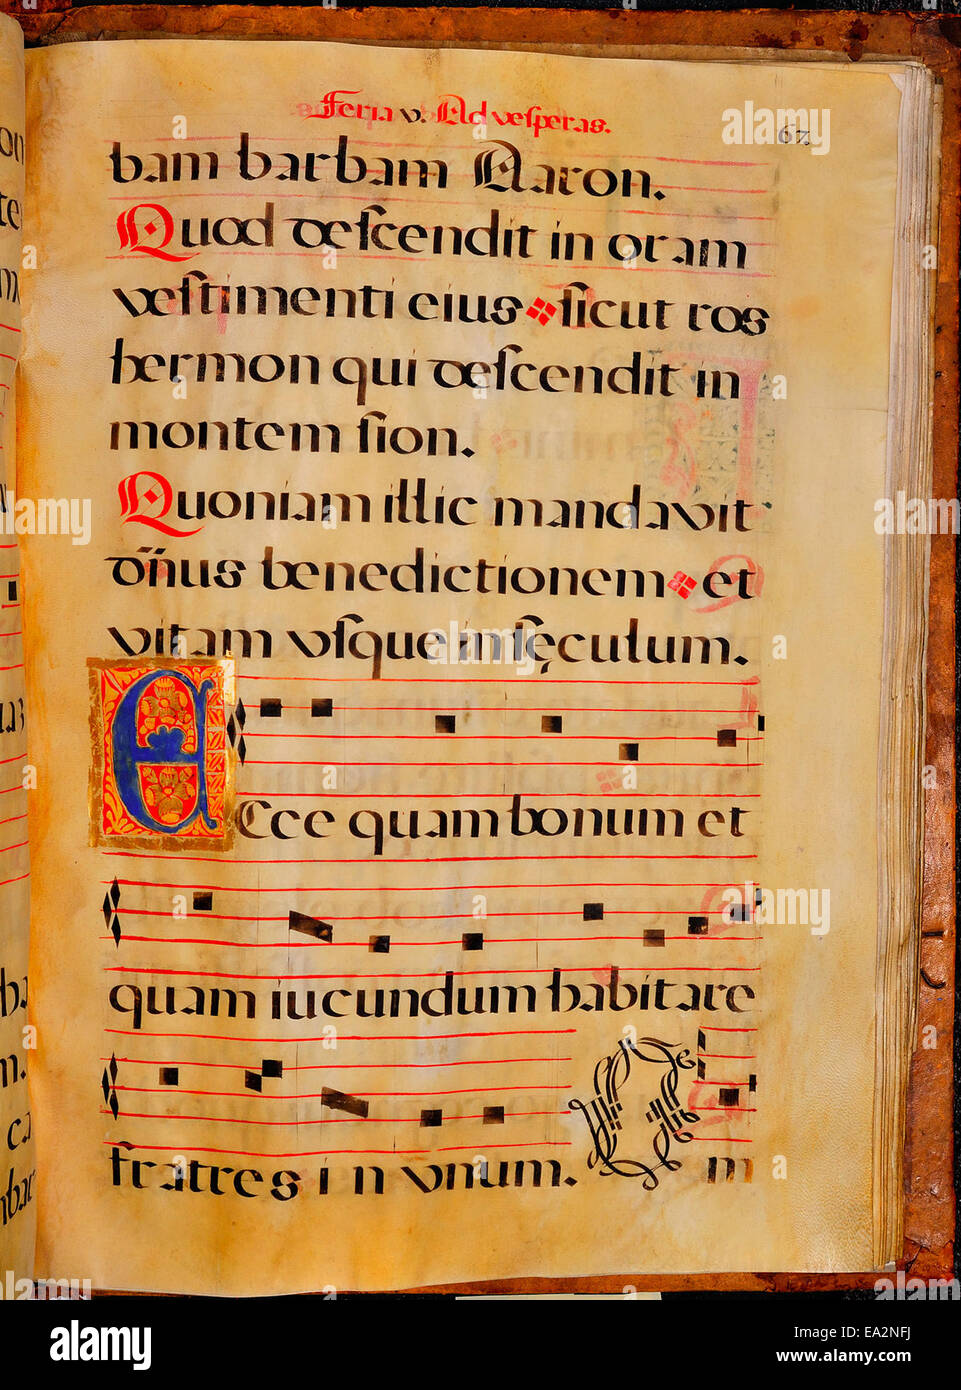 Feria v. Ad vesperas.
67.
bam barbam Aaron.
Quod descendit in oram
vestimenti eius sicut ros
hermon qui descendit in
montem sion.
Quoniam illic mandavit
dñus benedictionem et
vitam vsque in sęculum.
Ecce quam bonum et
quam iucundum habitare
fratres in vnum. m
a alamy stock photo
alamy
Image ID: EA2NFJ
www.alamy.com